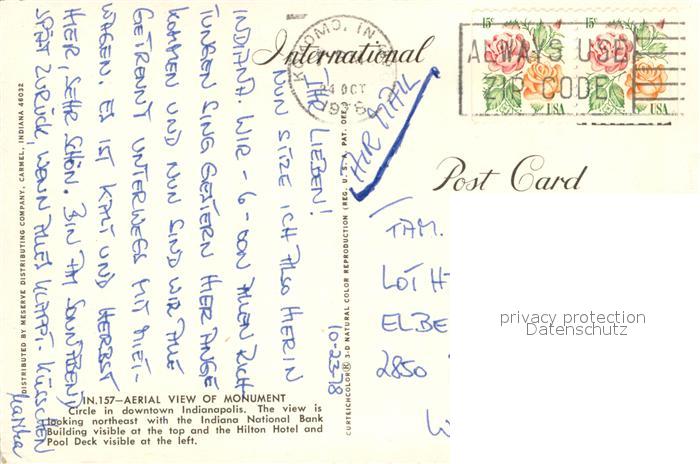 International
Post Card
KOKOMO, IN
24 OCT
1978
ALWAYS USE
ZIP CODE
15c
15c
USA
USA
AIR MAIL
10-23-78
IHR LIEBEN!
NUN SITZE ICH ALSO HIER IN
INDIANA. WIR - 6 - VON ALLEN RICH
TUNGEN SIND GESTERN HIER ANGE
KOMMEN UND NUN SIND WIR ALLE
GETRENNT UNTERWEGS MIT MIET-
WAGEN. ES IST KALT UND HERBST
HIER, SEHR SCHÖN. BIN AM SONNTABEND
SPÄT ZURÜCK, WENN ALLES KLAPPT. KÜSSCHEN
FAM.
LOTH
ELBE
2850
privacy protection
Datenschutz
IN.157—AERIAL VIEW OF MONUMENT
Circle in downtown Indianapolis. The view is
looking northeast with the Indiana National Bank
Building visible at the top and the Hilton Hotel and
Pool Deck visible at the left.
DISTRIBUTED BY MESERVE DISTRIBUTING COMPANY, CARMEL, INDIANA 46032
CURTEICHCOLOR® 3-D NATURAL COLOR REPRODUCTION (REG. U. S. A. PAT. OFF.)